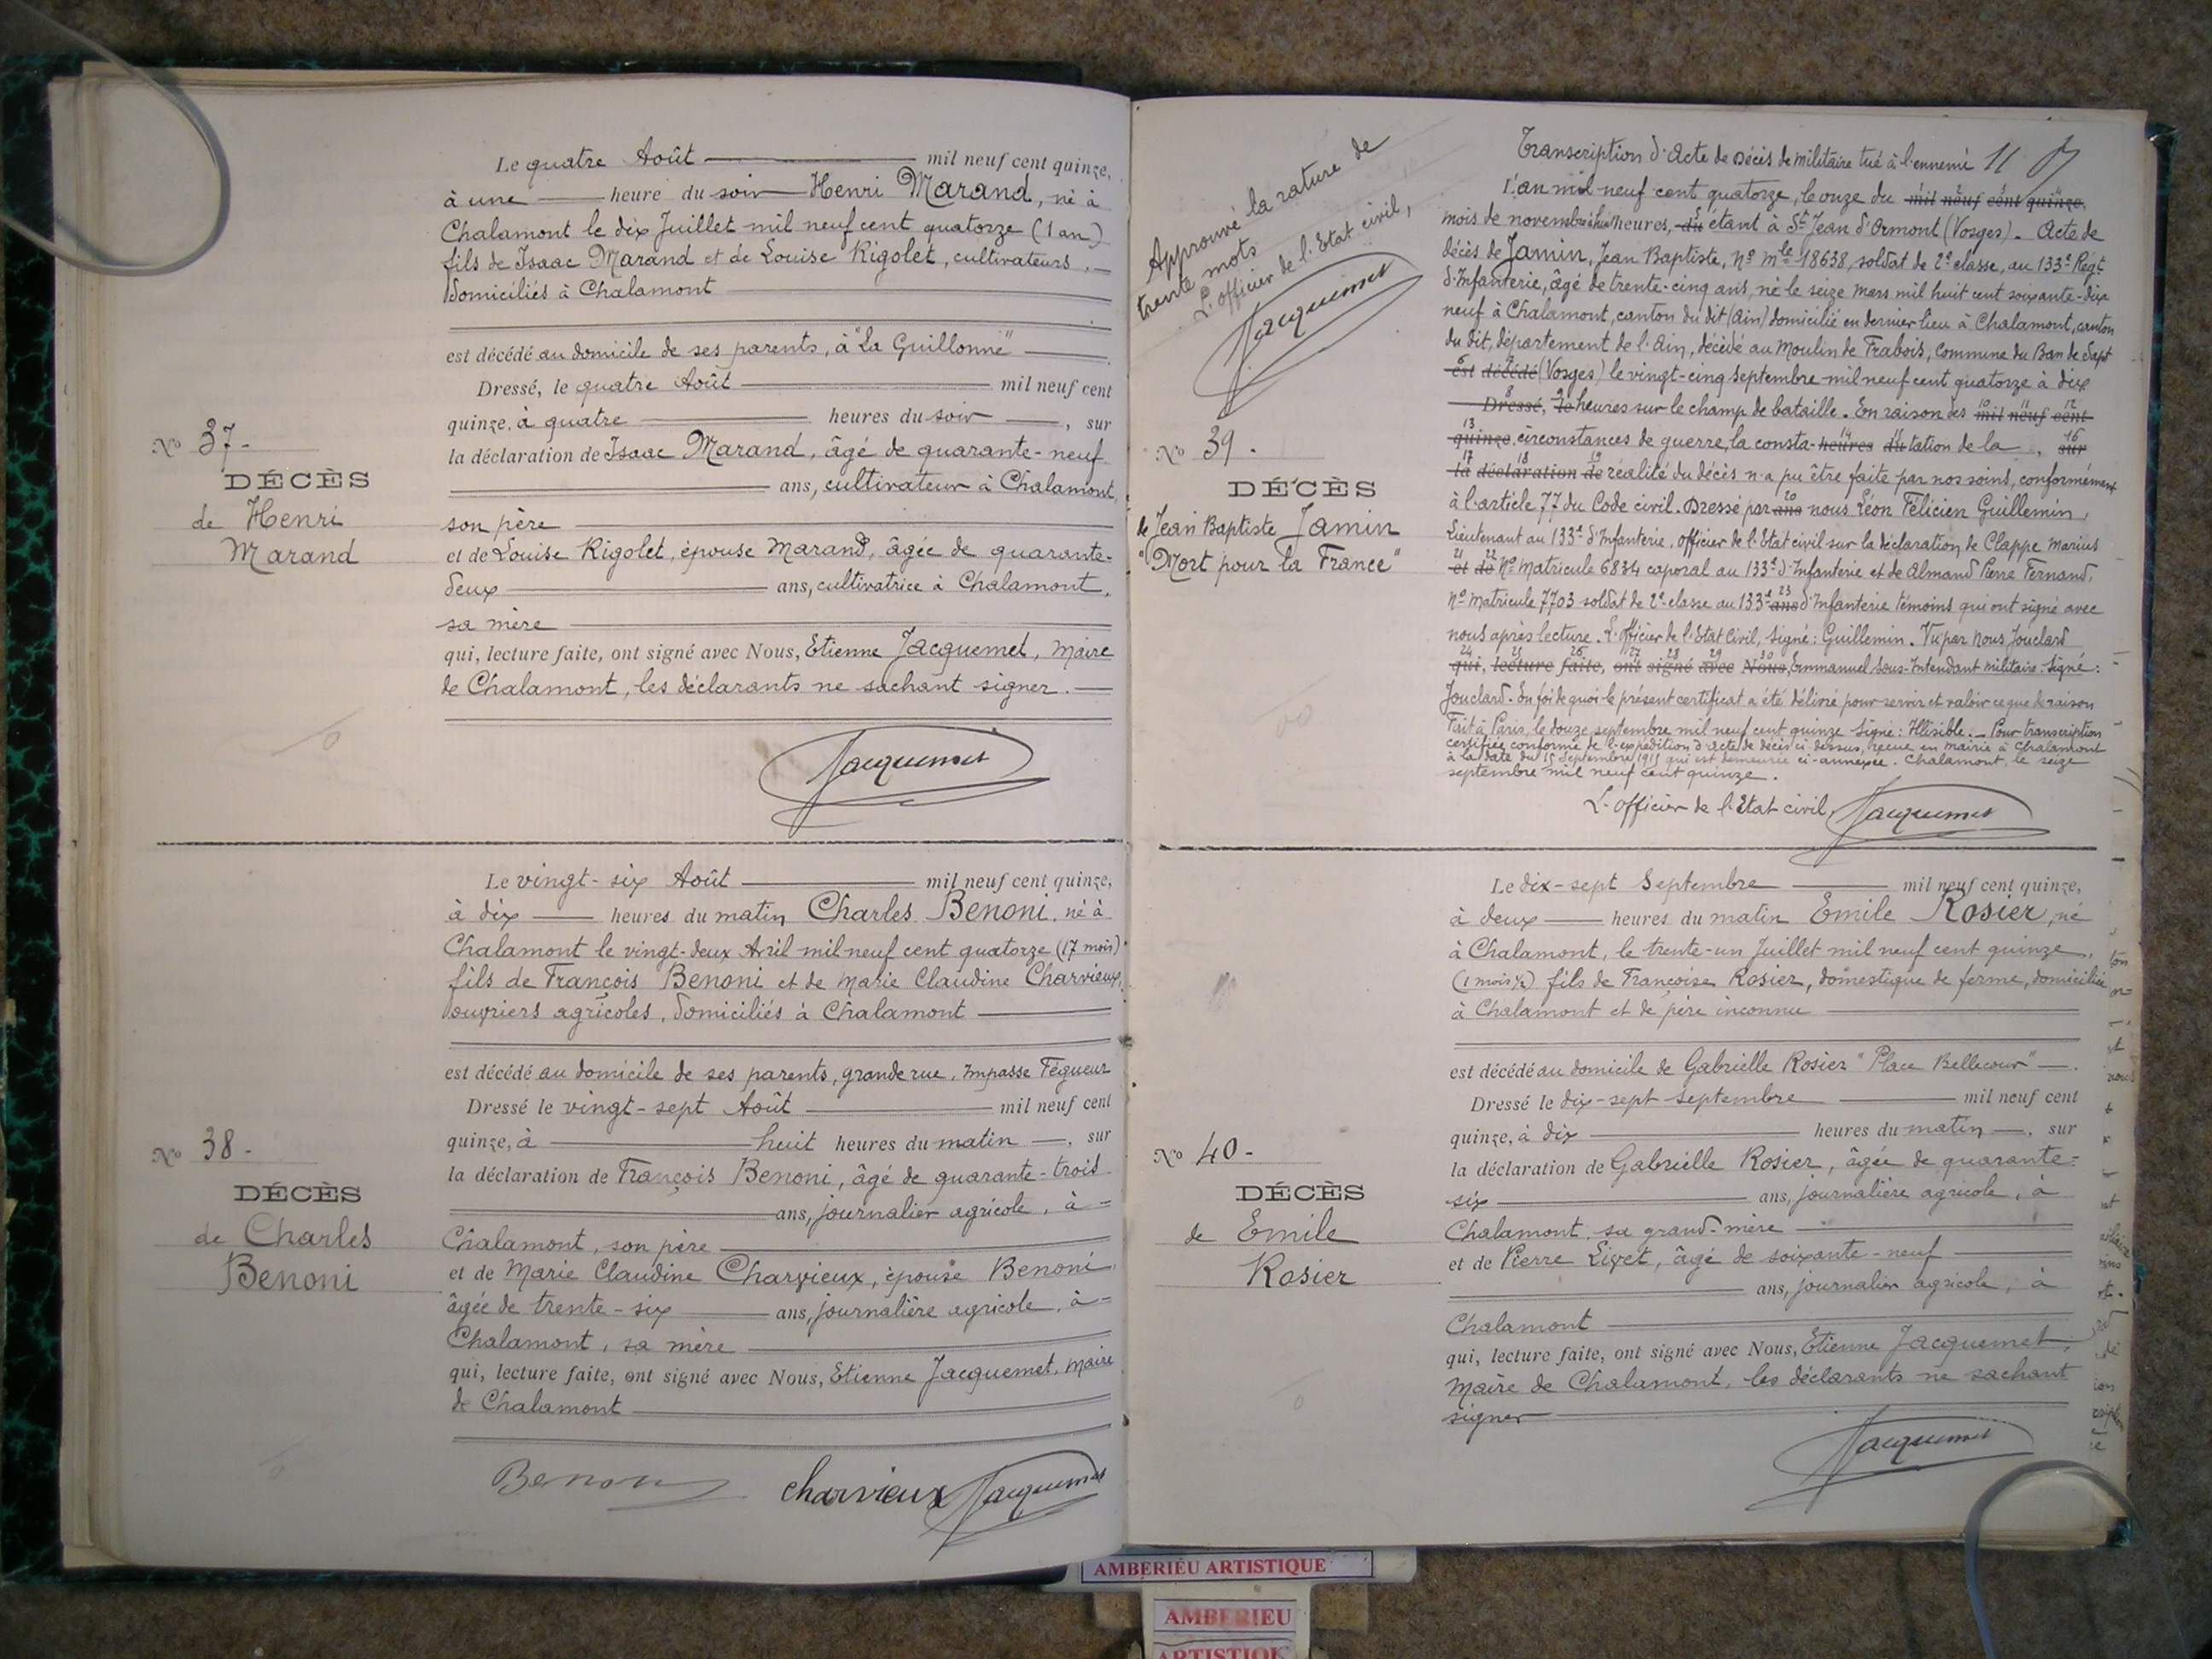 Le quatre Août mil neuf cent quinze,
à une heure du soir Henri Marand, né à
Chalamont le dix Juillet mil neuf cent quatorze (1 an)
fils de Isaac Marand et de Louise Rigolet, cultivateurs,
domiciliés à Chalamont
est décédé au domicile de ses parents, à "La Guillonne"
Dressé, le quatre Août mil neuf cent
quinze, à quatre heures du soir, sur
la déclaration de Isaac Marand, âgé de quarante-neuf
ans, cultivateur à Chalamont,
son père
et de Louise Rigolet, épouse Marand, âgée de quarante-
deux ans, cultivatrice à Chalamont,
sa mère
qui, lecture faite, ont signé avec Nous, Etienne Jacquemet, Maire
de Chalamont, les déclarants ne sachant signer.
Jacquemet
No 37.
DÉCÈS
de Henri
Marand
Le vingt-six Août mil neuf cent quinze,
à dix heures du matin Charles Benoni, né à
Chalamont le vingt-deux Avril mil neuf cent quatorze (17 mois)
fils de François Benoni et de Marie Claudine Charvieux,
ouvriers agricoles, domiciliés à Chalamont
est décédé au domicile de ses parents, grande rue, Impasse Fégueur
Dressé le vingt-sept Août mil neuf cent
quinze, à huit heures du matin, sur
la déclaration de François Benoni, âgé de quarante-trois
ans, journalier agricole, à
Chalamont, son père
et de Marie Claudine Charvieux, épouse Benoni,
âgée de trente-six ans, journalière agricole, à
Chalamont, sa mère
qui, lecture faite, ont signé avec Nous, Etienne Jacquemet, Maire
de Chalamont
Benoni Charvieux Jacquemet
No 38.
DÉCÈS
de Charles
Benoni
Approuvé la rature de
trente mots
L'officier de l'Etat civil,
Jacquemet
No 39.
DÉCÈS
de Jean Baptiste Jamin
"Mort pour la France"
Transcription d'Acte de Décès de militaire tué à l'ennemi 11
L'an mil neuf cent quatorze, le onze du mil neuf cent quinze,
mois de novembre à huit heures, du étant à St Jean d'Ormont (Vosges). Acte de
décès de Jamin, Jean Baptiste, No mle 18638, soldat de 2e classe, au 133e Régt
d'Infanterie, âgé de trente-cinq ans, né le seize Mars mil huit cent soixante-dix
neuf à Chalamont, canton du dit (Ain) domicilié en dernier lieu à Chalamont, canton
du dit, département de l'Ain, décédé au Moulin de Frabois, Commune du Ban de Sapt
est décédé (Vosges) le vingt-cinq Septembre mil neuf cent quatorze à dix
Dressé, le heures sur le champ de bataille. En raison des mil neuf cent
quinze, circonstances de guerre, la consta- heures du tation de la, sur
la déclaration de réalité du décès n'a pu être faite par nos soins, conformément
à l'article 77 du Code civil. Dressé par ans nous Léon Félicien Guillemin,
Lieutenant au 133e d'Infanterie, officier de l'Etat civil sur la déclaration de Clappe Marius
et de No Matricule 6834 caporal au 133e d'Infanterie et de Almand Pierre Fernand,
No Matricule 7703 soldat de 2e classe au 133e ans d'Infanterie témoins qui ont signé avec
nous après lecture. L'officier de l'Etat Civil, signé: Guillemin. Vu par Nous Jouclard
qui, lecture faite, ont signé avec Nous, Emmanuel Sous-Intendant militaire signé:
Jouclard. En foi de quoi le présent certificat a été délivré pour servir et valoir ce que de raison
Fait à Paris, le douze septembre mil neuf cent quinze signé: Illisible. Pour transcription
certifiée conforme de l'expédition d'acte de décès ci-dessus, reçue en mairie à Chalamont
à la date du 15 Septembre 1915 qui est demeurée ci-annexée. Chalamont, le seize
septembre mil neuf cent quinze.
L'officier de l'Etat civil, Jacquemet
Le dix-sept Septembre mil neuf cent quinze,
à deux heures du matin Emile Rosier, né
à Chalamont, le trente-un Juillet mil neuf cent quinze,
(1 mois ½) fils de Françoise Rosier, domestique de ferme, domiciliée
à Chalamont et de père inconnu
est décédé au domicile de Gabrielle Rosier "Place Bellecour"
Dressé le dix-sept Septembre mil neuf cent
quinze, à dix heures du matin, sur
la déclaration de Gabrielle Rosier, âgée de quarante-
six ans, journalière agricole, à
Chalamont, sa grand-mère
et de Pierre Livet, âgé de soixante-neuf
ans, journalier agricole, à
Chalamont
qui, lecture faite, ont signé avec Nous, Etienne Jacquemet,
Maire de Chalamont, les déclarants ne sachant
signer
Jacquemet
No 40.
DÉCÈS
de Emile
Rosier
AMBERIEU ARTISTIQUE
AMBERIEU
ARTISTIQ